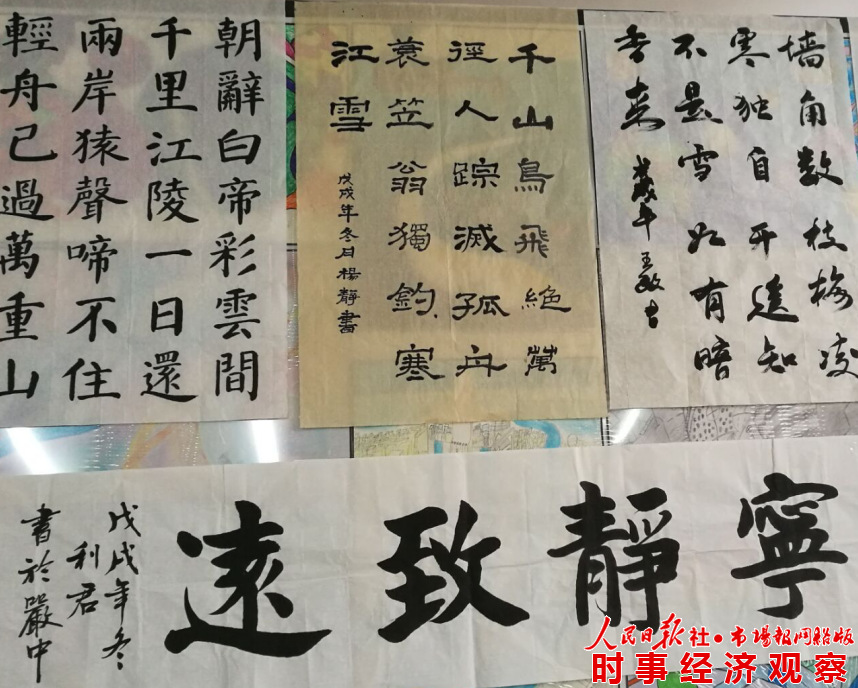 朝辭白帝彩雲間
千里江陵一日還
兩岸猿聲啼不住
輕舟已過萬重山
千山鳥飛絶萬
徑人踪滅孤舟
蓑笠翁獨釣寒
江雪
戊戌年冬月楊靜書
墙角数枝梅凌
寒独自开遥知
不是雪为有暗
香来
戊戌年王敏书
寧靜致遠
戊戌年冬
利君
書於嚴中
人民日报社·市場报网络版
时事经济观察